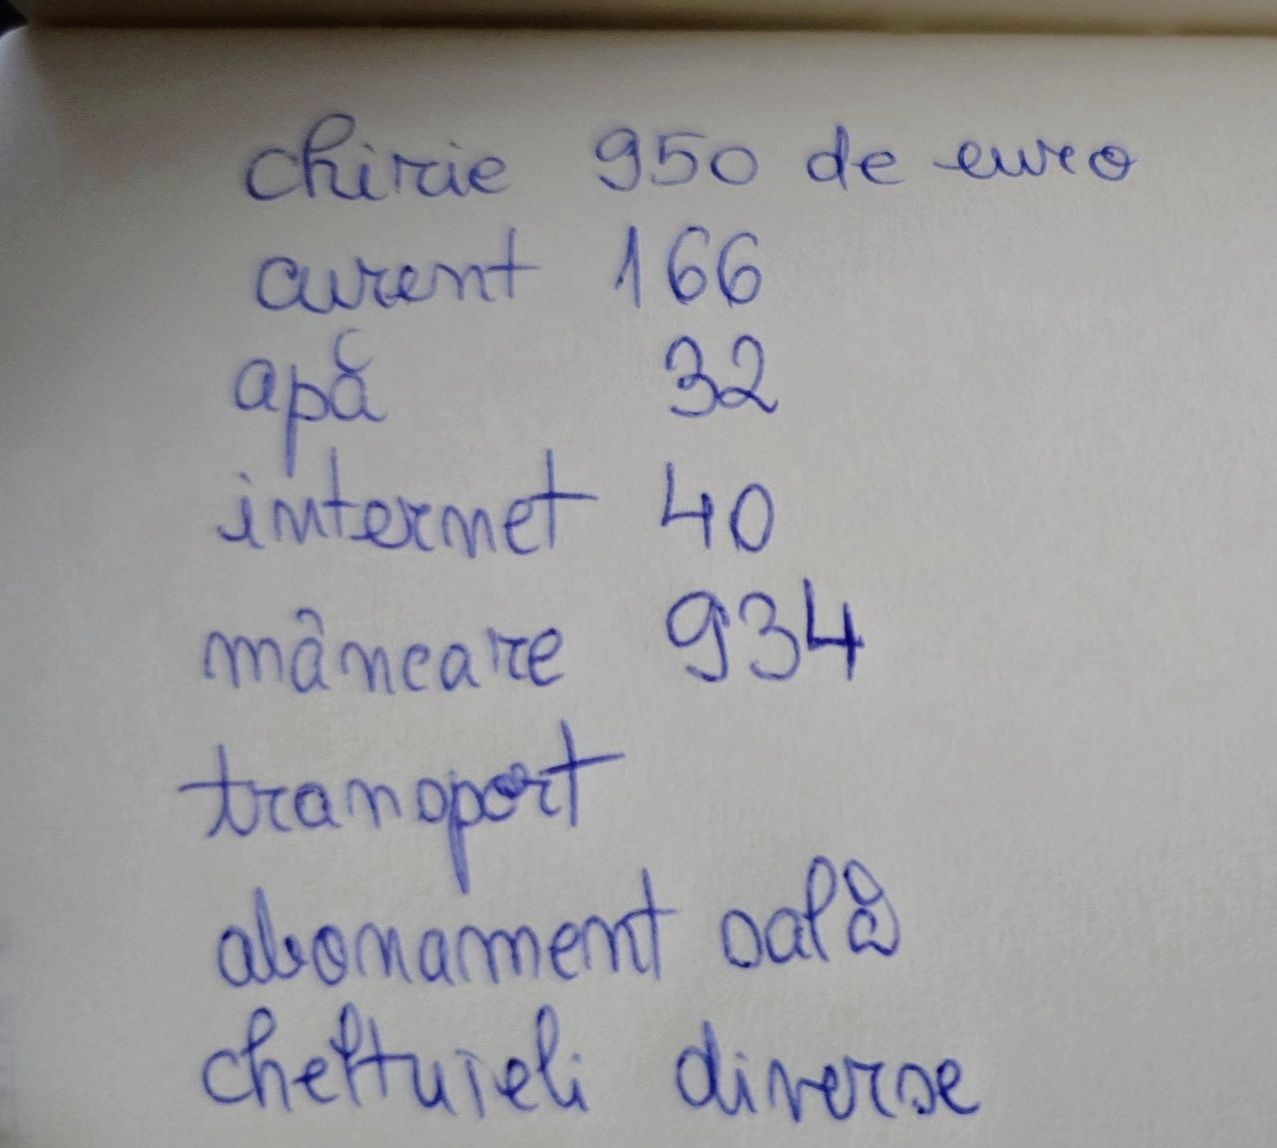 chirie 950 de euro
curent 166
apă 32
internet 40
mâncare 934
transport
abonament sală
cheltuieli diverse